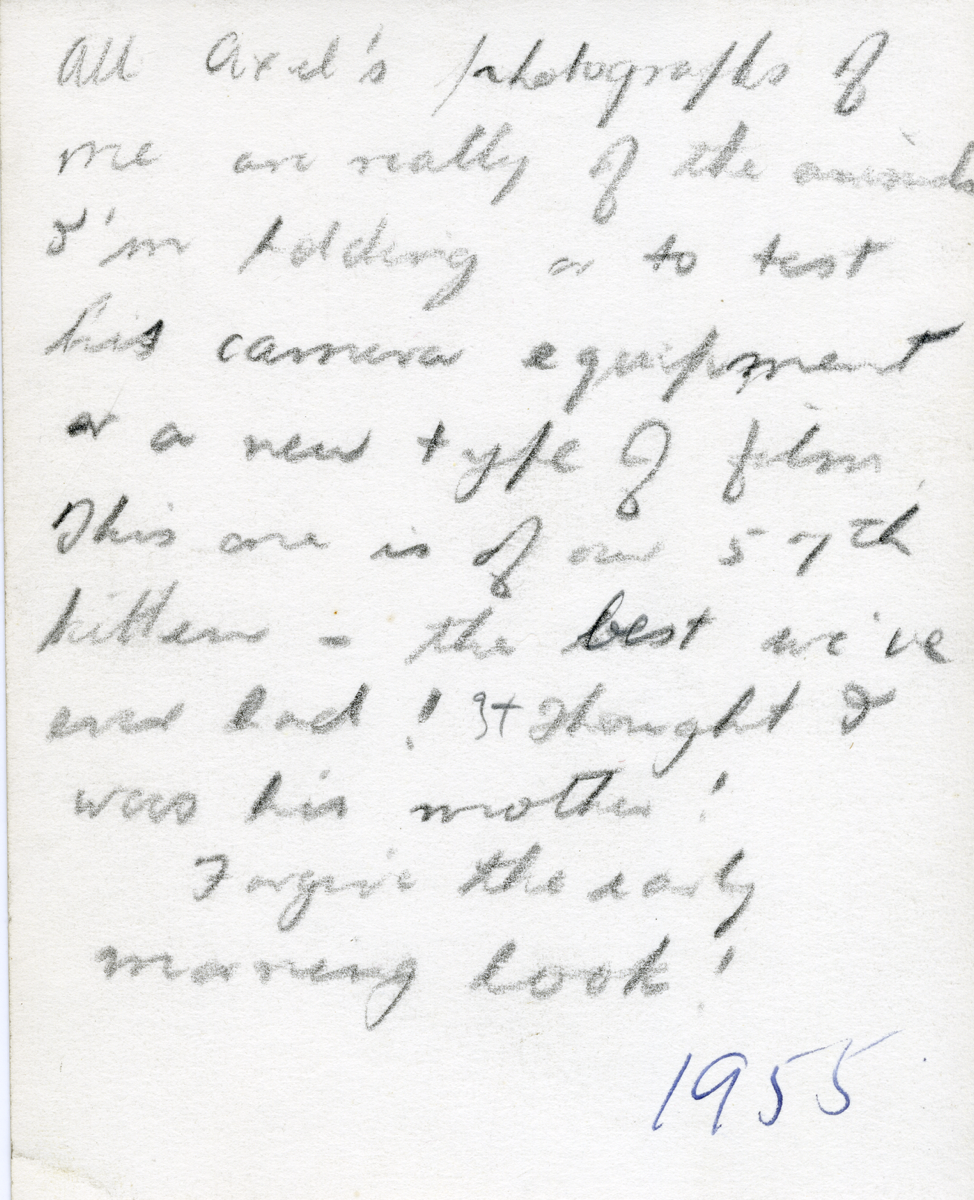 All Axel's photographs of
me are really of the animals
I'm holding or to test
his camera equipment
or a new type of film.
This one is of our 57th
kitten - the best we've
ever had! It thought I
was his mother!
Forgive the early
morning look!
1955